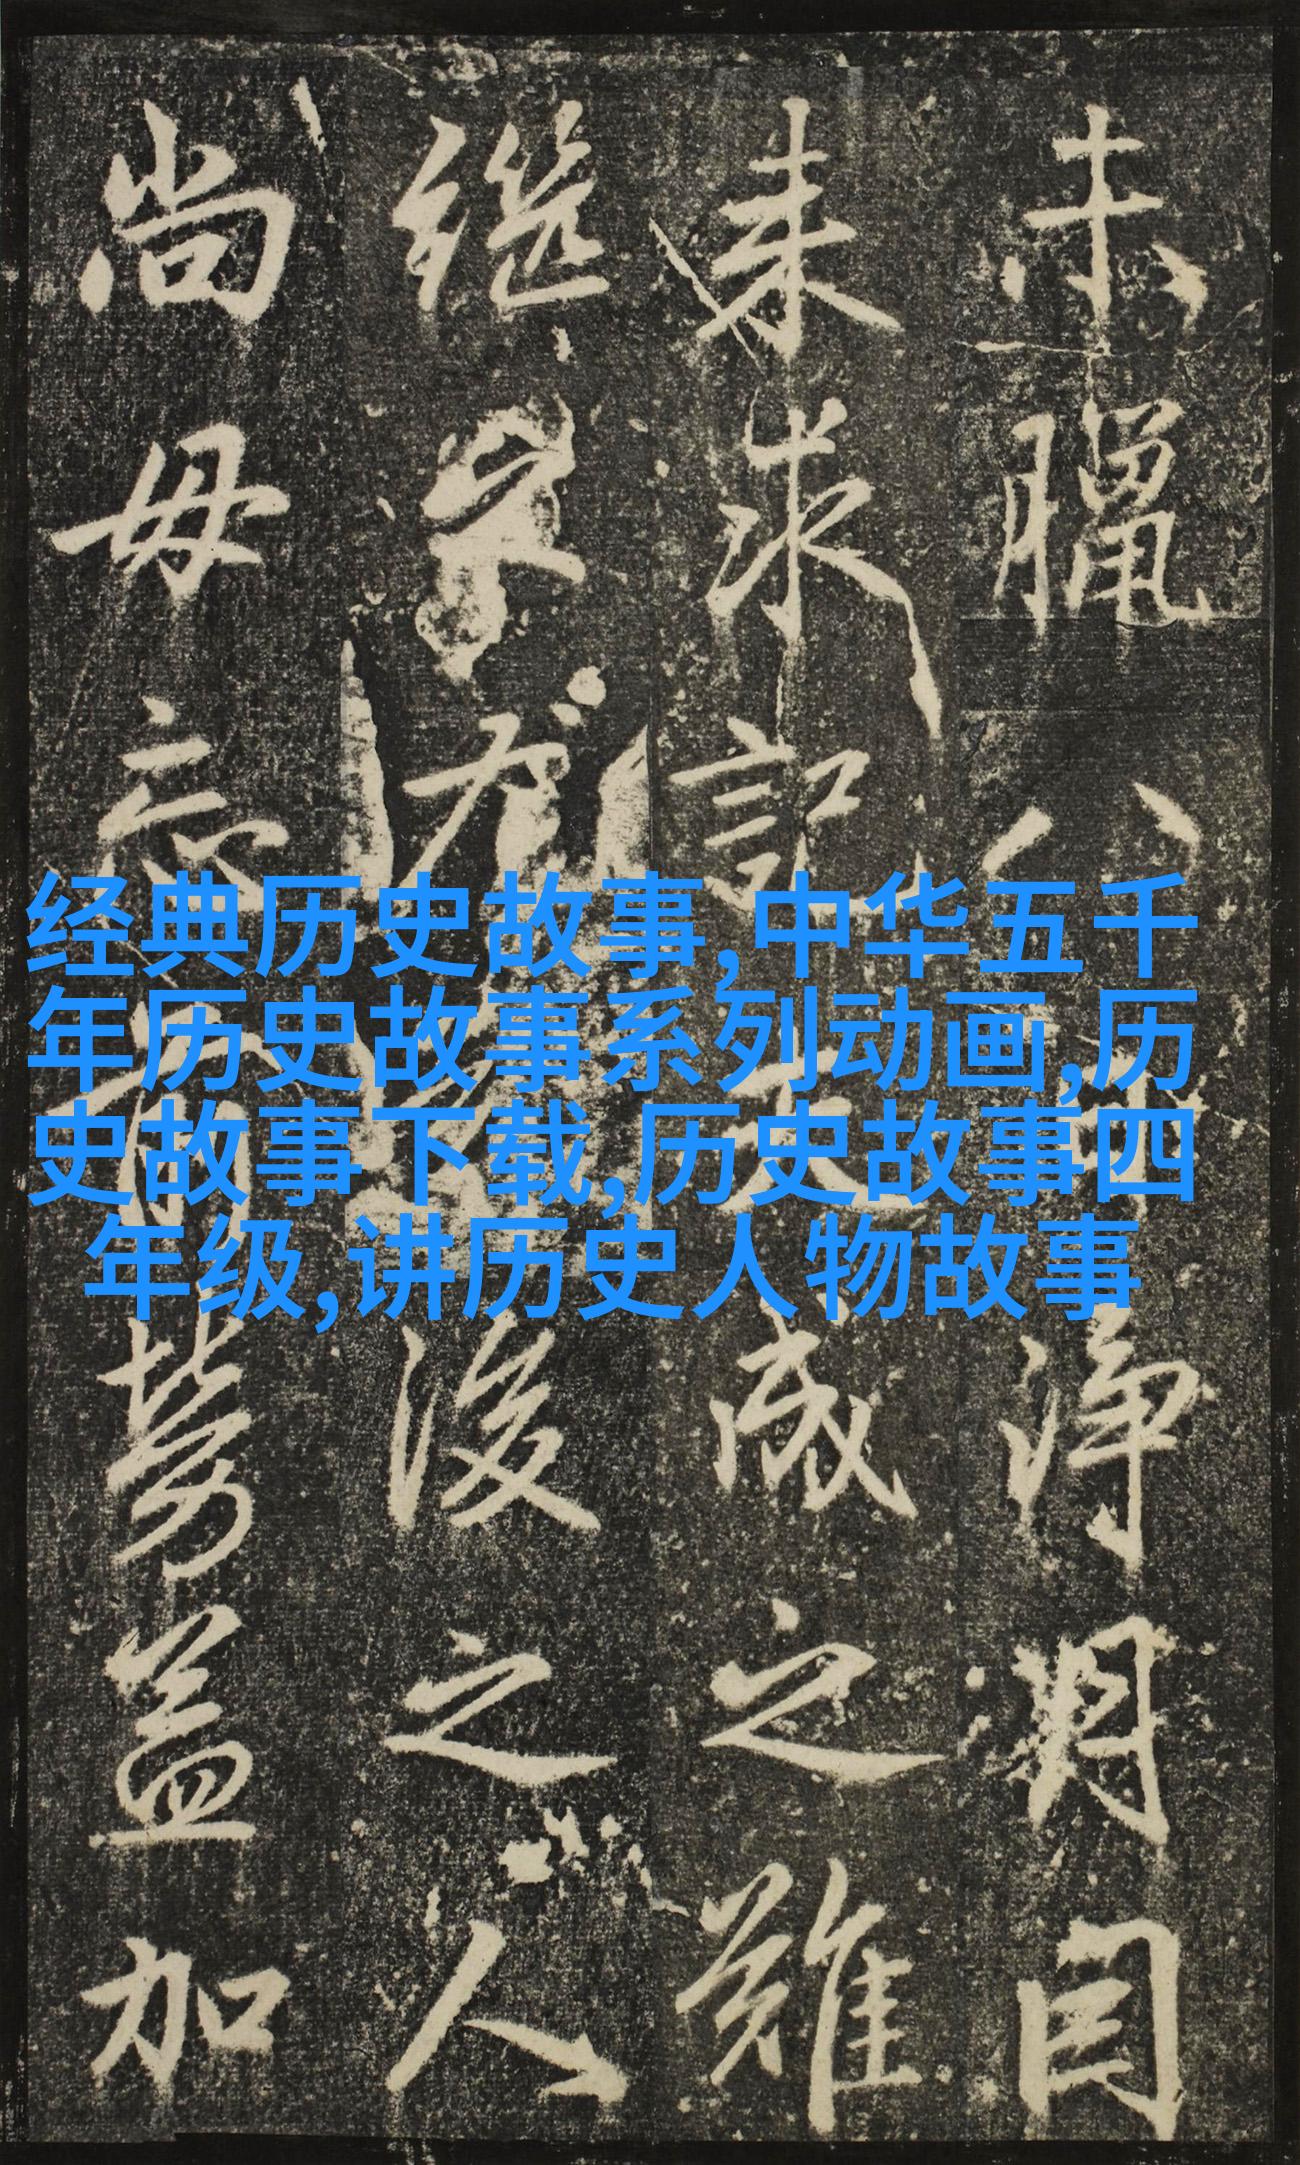 未臘八淨
来求記成之難
继後之人
尚毋忘前勞益加
经典历史故事,中华五千
年历史故事系列动画,历
史故事下载,历史故事四
年级,讲历史人物故事